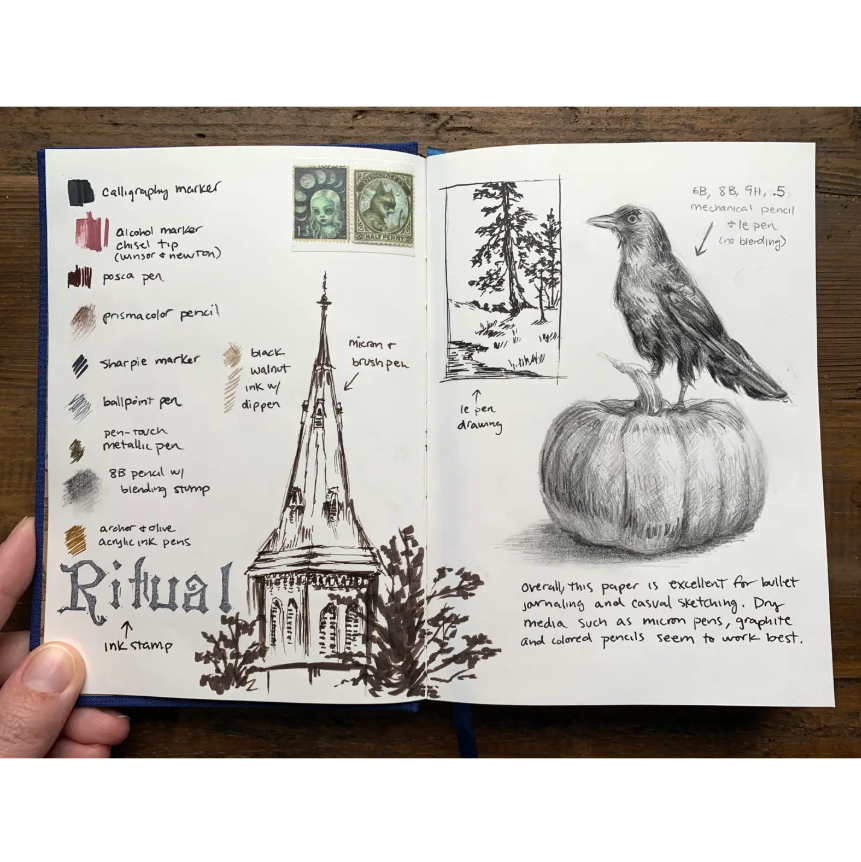 calligraphy marker
alcohol marker
chisel tip
(winsor & newton)
posca pen
prismacolor pencil
sharpie marker
ballpoint pen
pen-touch
metallic pen
8B pencil w/
blending stump
archer & olive
acrylic ink pens
Ritual
ink stamp
black
walnut
ink w/
dip pen
13
HALF PENNY
micron &
brush pen
le pen
drawing
6B, 8B, 9H, .5
mechanical pencil
& le pen
(no blending)
Overall, this paper is excellent for bullet
journaling and casual sketching. Dry
media such as micron pens, graphite
and colored pencils seem to work best.